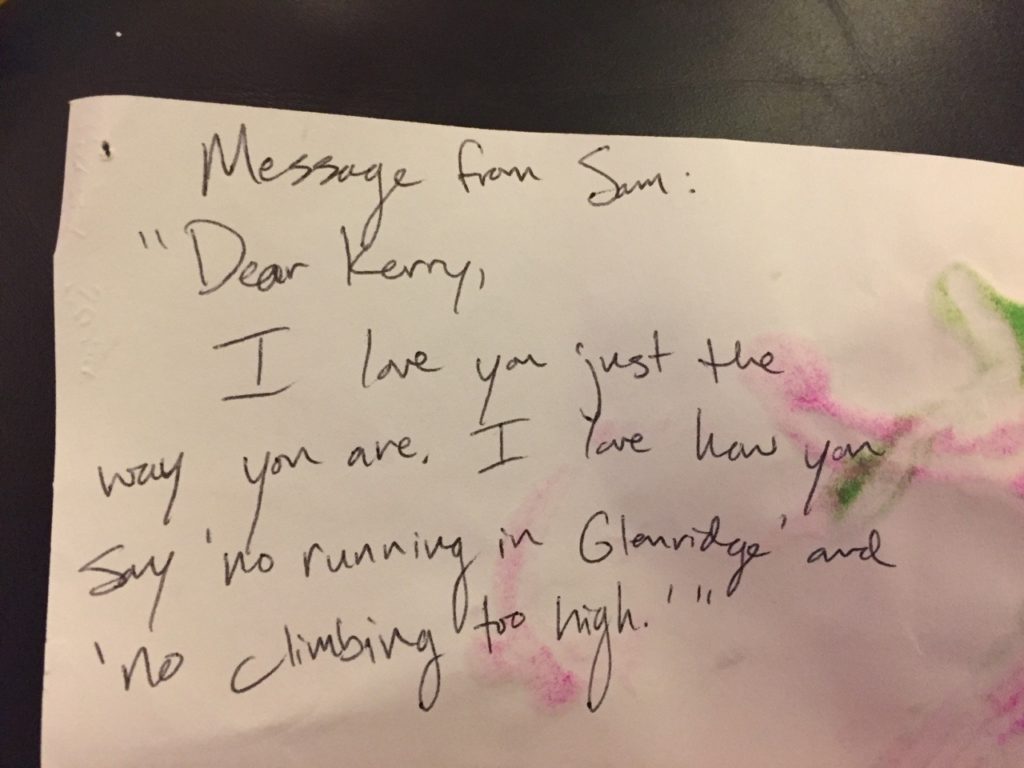 Message from Sam:
"Dear Kerry,
I love you just the
way you are. I love how you
say 'no running in Glenridge' and
'no climbing too high.'"